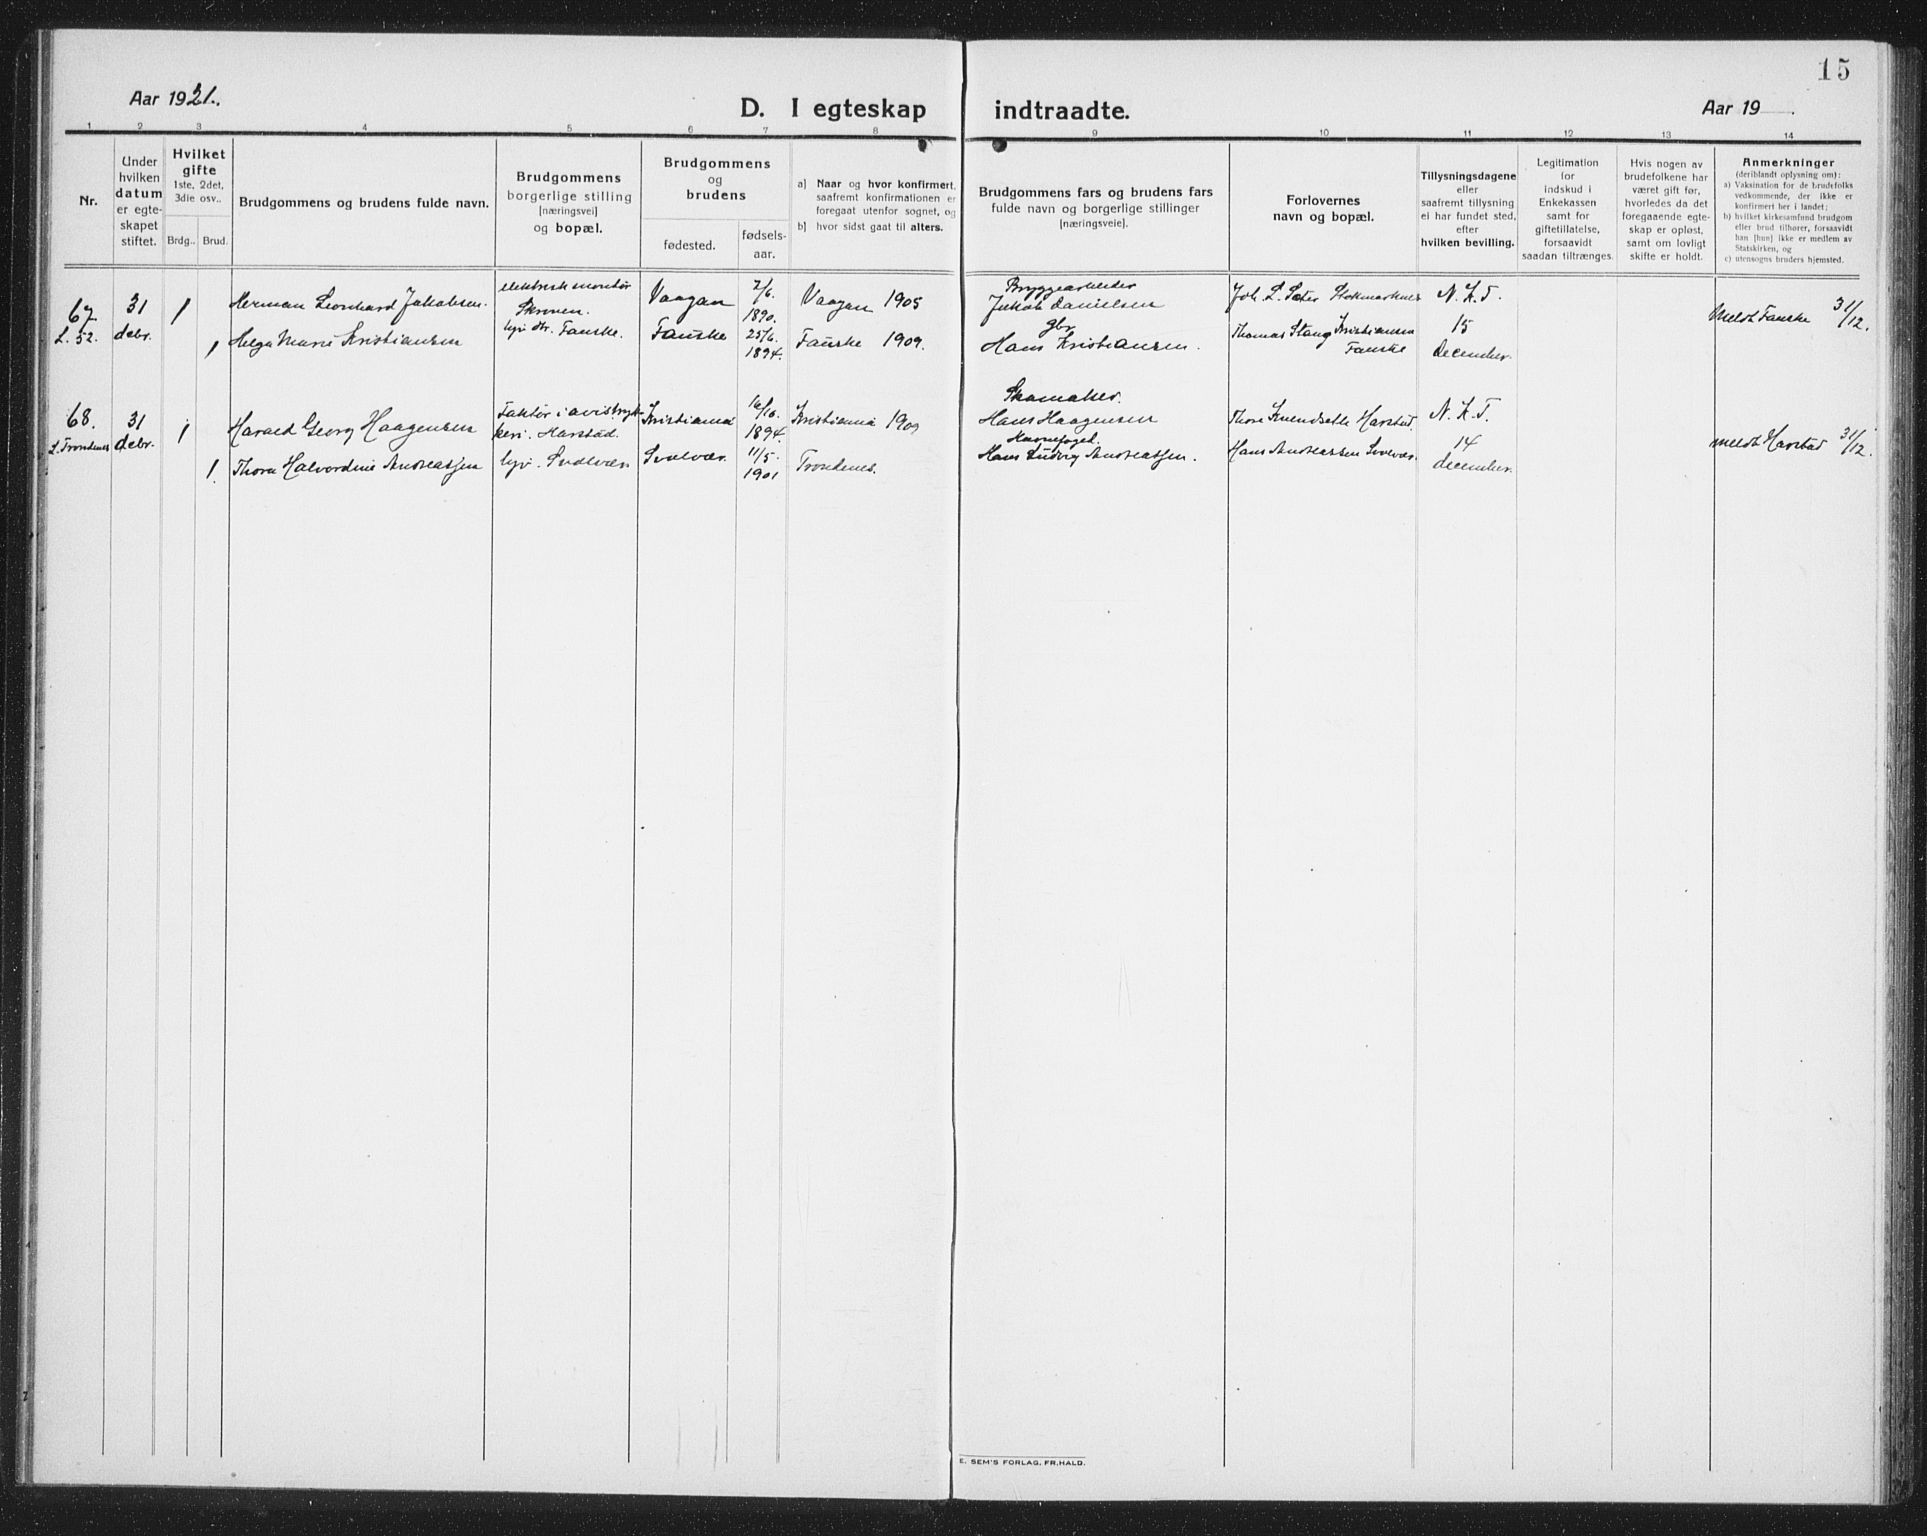 15
Aar 1921.
D. I egteskap indtraadte.
Aar 19
1 2 3 4 5 6 7 8 9 10 11 12 13 14
Nr.
Under
hvilken
datum
er egte-
skapet
stiftet.
Hvilket
gifte
1ste, 2det,
3die osv..
Brdg.. Brud.
Brudgommens og brudens fulde navn.
Brudgommens
borgerlige stilling
[næringsvei]
og bopæl.
Brudgommens
og
brudens
fødested.
fødsels-
aar.
a] Naar og hvor konfirmert,
saafremt konfirmationen er
foregaat utenfor sognet, og
b] hvor sidst gaat til alters.
Brudgommens fars og brudens fars
fulde navn og borgerlige stillinger
[næringsveie].
Forlovernes
navn og bopæl.
Tillysningsdagene
eller
saafremt tillysning
ei har fundet sted,
efter
hvilken bevilling.
Legitimation
for
indskud i
Enkekassen
samt for
giftetillatelse,
forsaavidt
saadan tiltrænges.
Hvis nogen av
brudefolkene har
været gift før,
hvorledes da det
foregaaende egte-
skap er opløst,
samt om lovligt
skifte er holdt.
Anmerkninger
(deriblandt oplysning om):
a) Vaksination for de brudefolks
vedkommende, der ikke er
konfirmert her i landet;
b) hvilket kirkesamfund brudgom
eller brud tilhører, forsaavidt
han [hun] ikke er medlem av
Statskirken, og
c) utensogns bruders hjemsted.
67
L. 52.
31
debr.
1
1
Herman Leonhard Jakobsen.
Helga Marie Kristiansen
elektrisk montør
Skroven.
hjv. dtr. Fauske.
Vaagan
Fauske
2/6
1890.
25/6
1894.
Vaagan 1905
Fauske 1909.
Bryggearbeider
Jakob Danielsen
gbr
Hans Kristiansen.
Joh. L. Sæter Stokmarknes
Thomas Stang Kristiansen
Fauske
N. K. T.
15
december.
Meldt Fauske 31/12.
68.
L. Trondenes
31
debr.
1
1.
Harald Georg Haagensen
Thora Halvordine Andreassen
Faktor i avistryk-
keri. Harstad.
hjv. Svolvær
Kristiania
Svolvær.
16/10.
1894.
11/5.
1901
Kristiania 1909
Trondenes.
Skomaker.
Hans Haagensen
Havnefoged.
Hans Ludvig Andreassen.
Thore Harstad.
Hans Andreassen Svolvær.
N. K. T.
14
december.
meldt Harstad 31/12.
E. SEM'S FORLAG, FR.HALD.